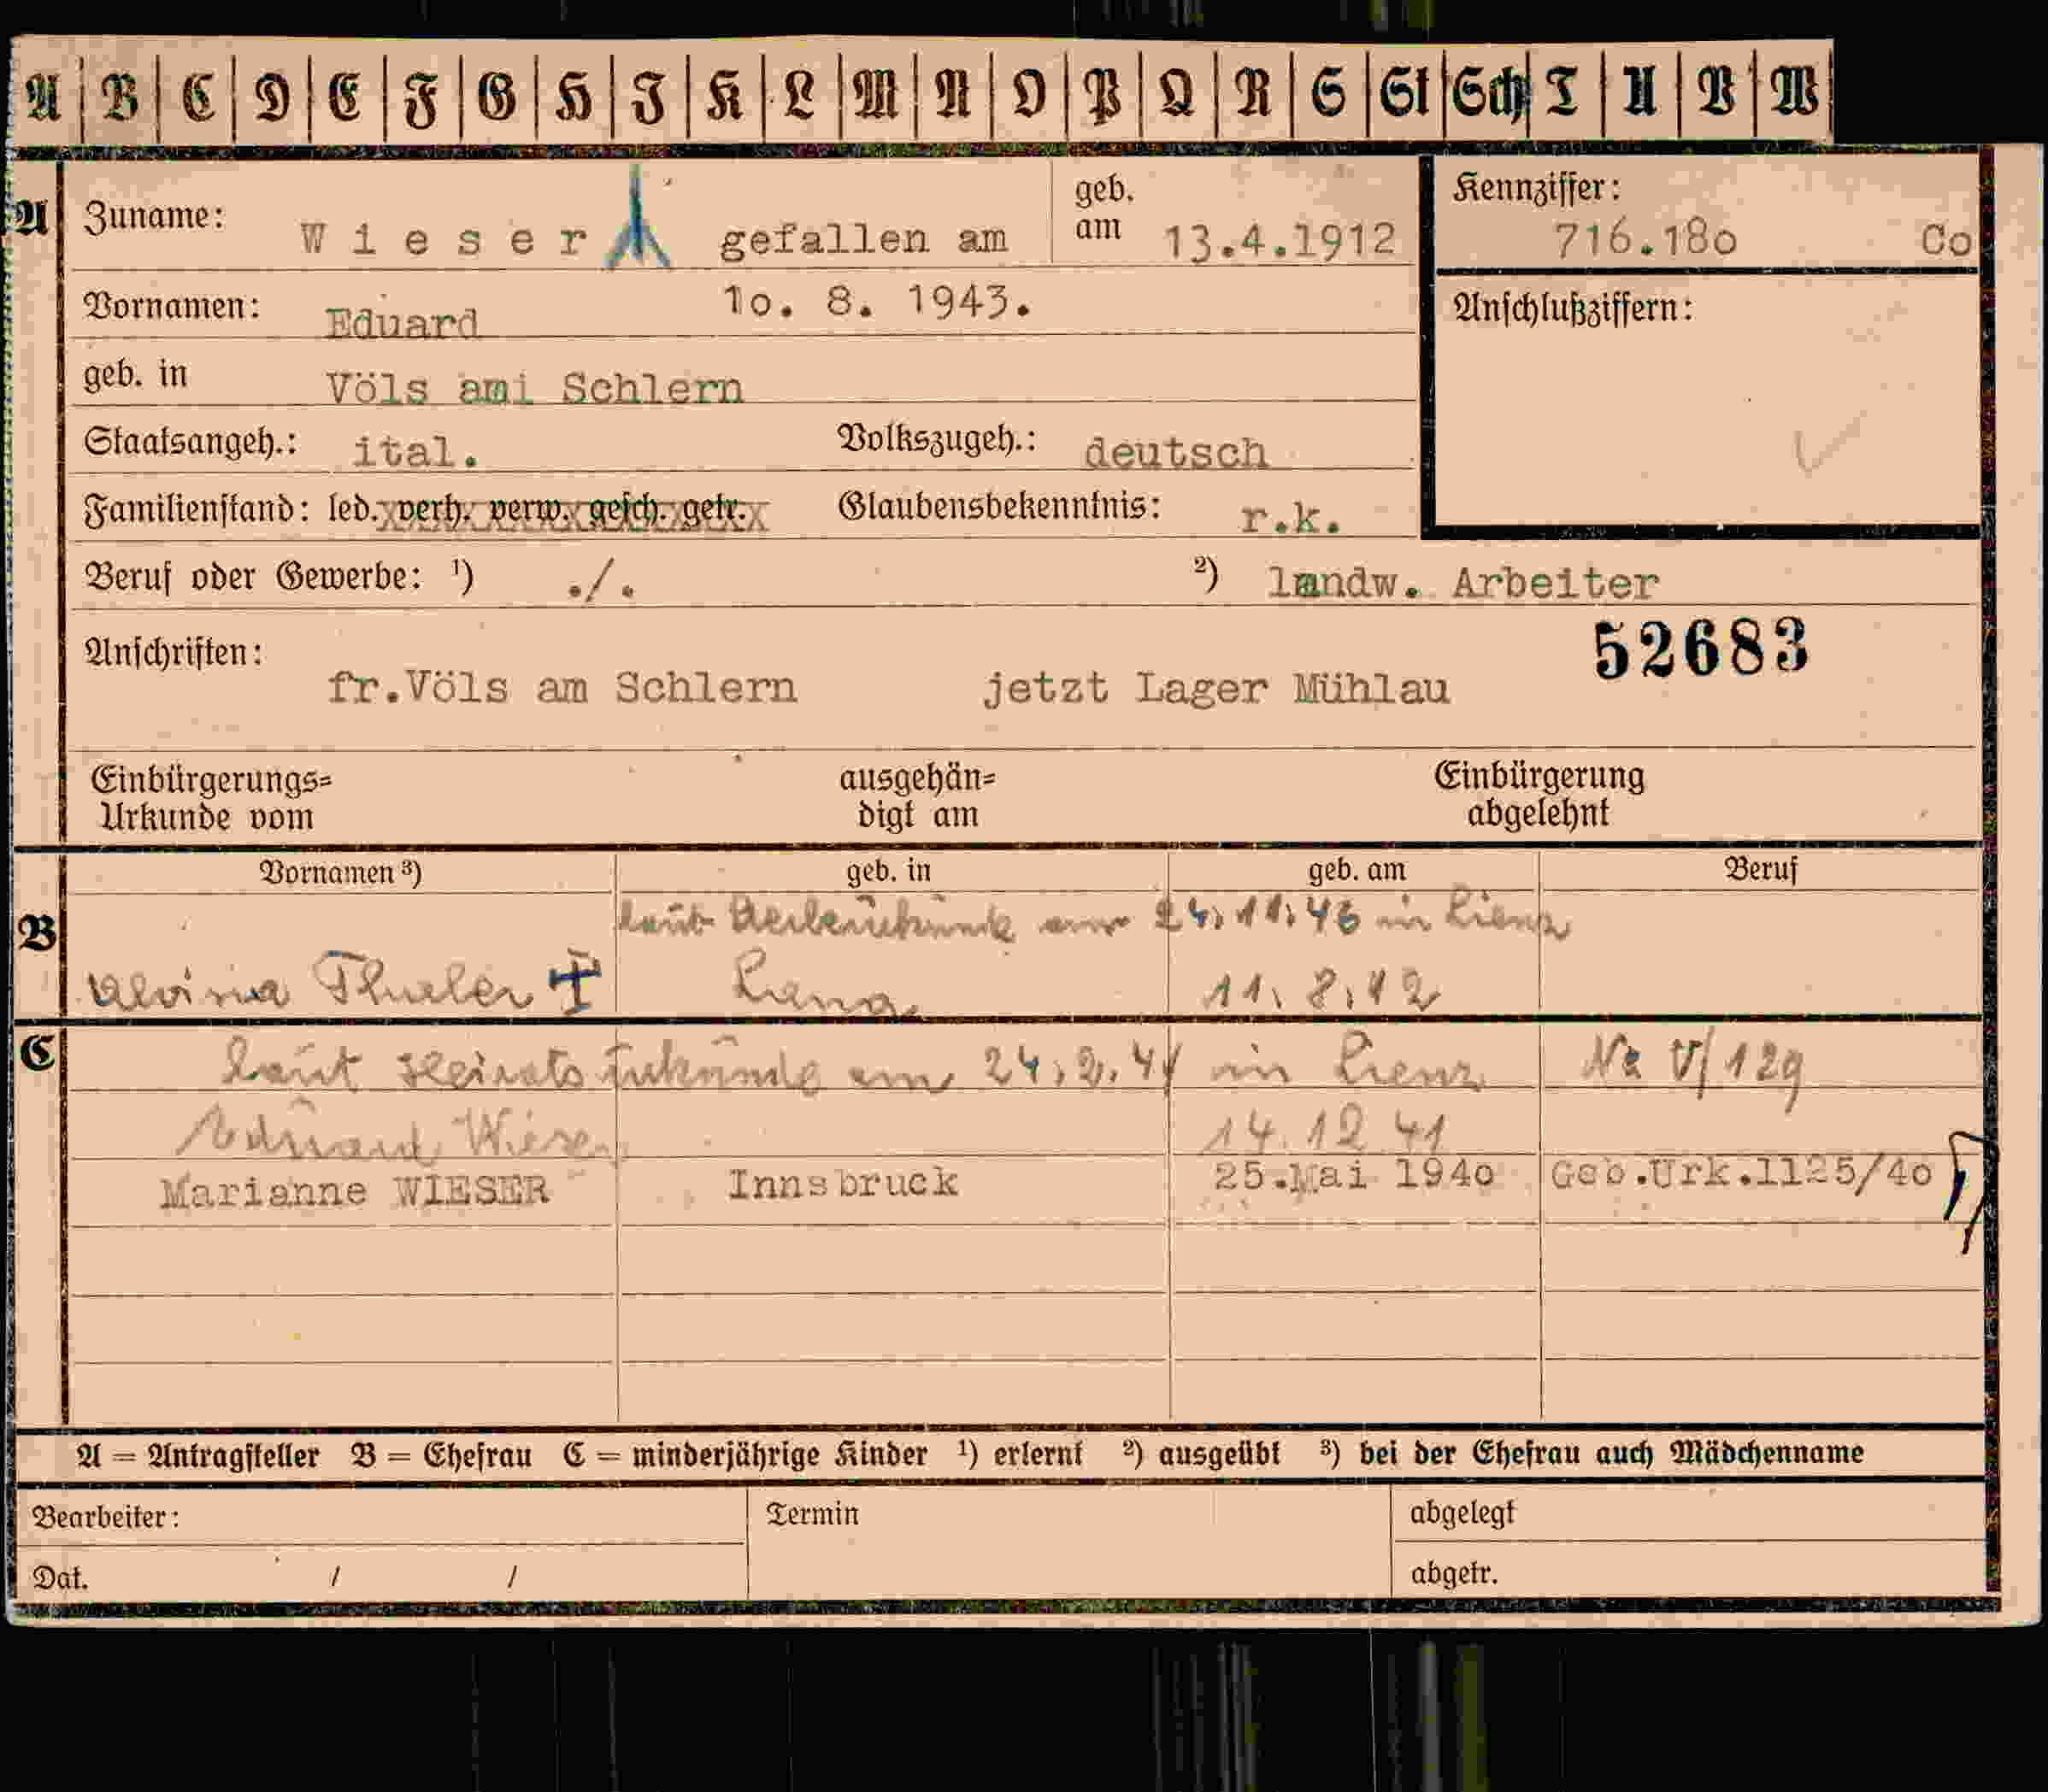 A B C D E F G H J K L M N O P Q R S St Sch T U V W
A Zuname: Wieser gefallen am geb. am 13.4.1912 Kennziffer: 716.180 Co
Vornamen: Eduard 10. 8. 1943. Anschlußziffern:
geb. in Völs am Schlern
Staatsangeh.: ital. Volkszugeh.: deutsch
Familienstand: led. verh. verw. gesch. getr. Glaubensbekenntnis: r.k.
Beruf oder Gewerbe: ¹) ./. ²) landw. Arbeiter
52683
Anschriften: fr.Völs am Schlern jetzt Lager Mühlau
Einbürgerungs= ausgehän= Einbürgerung
Urkunde vom digt am abgelehnt
Vornamen ³) geb. in geb. am Beruf
B laut Sterbeurkunde am 24.11.43 in Lienz
Thaler Lana 11.8.12
C laut Heiratsurkunde am 24.2.41 in Lienz No V/129
Eduard Wieser 14.12 41
Marianne WIESER Innsbruck 25.Mai 1940 Geb.Urk.1125/40
A = Antragsteller B = Ehefrau C = minderjährige Kinder ¹) erlernt ²) ausgeübt ³) bei der Ehefrau auch Mädchenname
Bearbeiter: Termin abgelegt
Dat. / / abgetr.